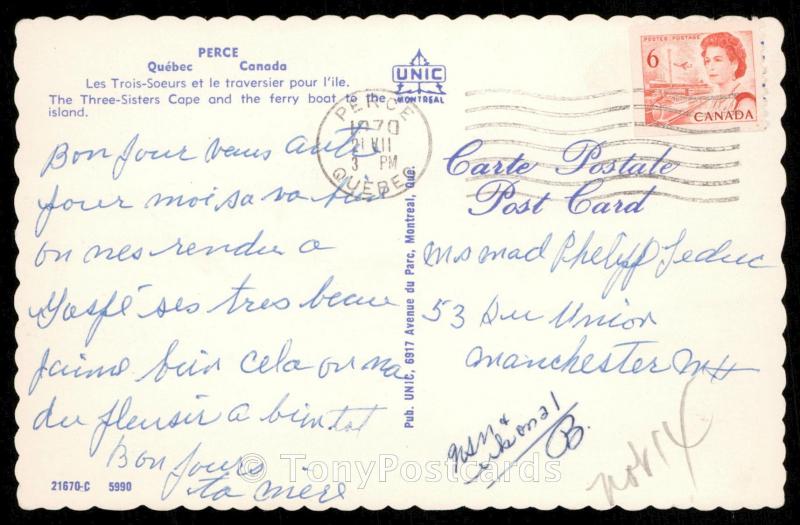 PERCE
Québec Canada
Les Trois-Soeurs et le traversier pour l'île.
The Three-Sisters Cape and the ferry boat to the
island.
UNIC
MONTREAL
PERCE
1970
21 VII
3 PM
QUÉBEC
POSTES POSTAGE
6
CANADA
Carte Postale
Post Card
Bon Jour vous autre
pour moi sa va bien
on nes rendu a
Gaspé ses tres beau
jaime bien cela on na
du plensir a bientot
Bon Jours
ta mère
Pub. UNIC, 6917 Avenue du Parc, Montreal, Que.
ms mad Phelipp Leduc
53 Du Union
manchester NH
B.
nov 14
21670-C 5990
© TonyPostcards